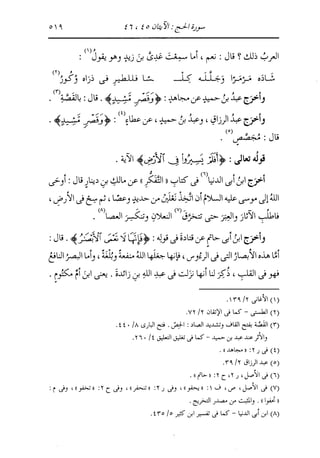 سورة الحج : الآيتان ٤٥ ، ٤٦
٥١٩
العربُ ذلك ؟ قال : نعم ، أما سمِعْتَ عَدِىَّ بنَ زيدٍ وهو يقولُ(١) :
شاده مَرمَرًا وجَلَّله كِلـ ـسًا فللطيرِ فى ذراه وُكُورُ(٢)
وأخرَج عبدُ بنُ حميدٍ عن مجاهدٍ : ﴿وَقَصْرٍ مَّشِيدٍ﴾ . قال : بالقَصَّةِ(٣) .
وأخرَج عبدُ الرزاقِ ، وعبدُ بنُ حميدٍ ، عن عطاءٍ(٤) : ﴿وَقَصْرٍ مَّشِيدٍ﴾ .
قال : مُجَصَّصٍ(٥) .
قولُه تعالى : ﴿أَفَلَمْ يَسِيرُوا فِى الْأَرْضِ﴾ الآية .
أخرَج ابنُ أبى الدنيا(٦) فى كتابِ « التفكُّرِ » عن مالكِ بنِ دينارٍ قال : أوحَى
اللهُ إلى موسى عليه السلامُ أن اتَّخِذْ نعلَيْنِ من حديدٍ وعصًا ، ثم سِحْ فى الأرضِ ،
فاطلُبِ الآثارَ والعِبَرَ حتى تتخرَّقَ(٧) النعلان وتنكسِرَ العصا(٨) .
وأخرَج ابنُ أبى حاتمٍ عن قتادةَ فى قولِه : ﴿فَإِنَّهَا لَا تَعْمَى الْأَبْصَٰرُ﴾ . قال :
أمَّا هذه الأبصارُ التى فى الرءوسِ ، فإنها جعَلها اللهُ منفعةً وبُلْغَةً ، وأما البصرُ النافعُ
فهو فى القلبِ ، ذُكِرَ لنا أنها نزَلت فى عبدِ اللهِ بنِ زائدةَ . يعنى ابنَ أمِّ مكتومٍ .
(١) الأغانى ٢/ ١٣٩.
(٢) الطستى - كما فى الإتقان ٢/ ٧٢.
(٣) القصَّة بفتح القاف وتشديد الصاد : الجصّ. فتح البارى ٨/ ٤٤٠.
والأثر عند عبد بن حميد - كما فى تغليق التعليق ٤/ ٢٦٠.
(٤) فى ر ٢: « مجاهد ».
(٥) عبد الرزاق ٢/ ٣٩.
(٦) فى الأصل، ر ٢، ح ٢: « حاتم ».
(٧) فى الأصل، ص، ف ١: « يحفوا »، وفى ر ٢: « تتحفر »، وفى ح ٢: « تحفوا »، وفى م :
« تحفوا ». والمثبت من مصدر التخريج.
(٨) ابن أبى الدنيا - كما فى تفسير ابن كثير ٥/ ٤٣٥.